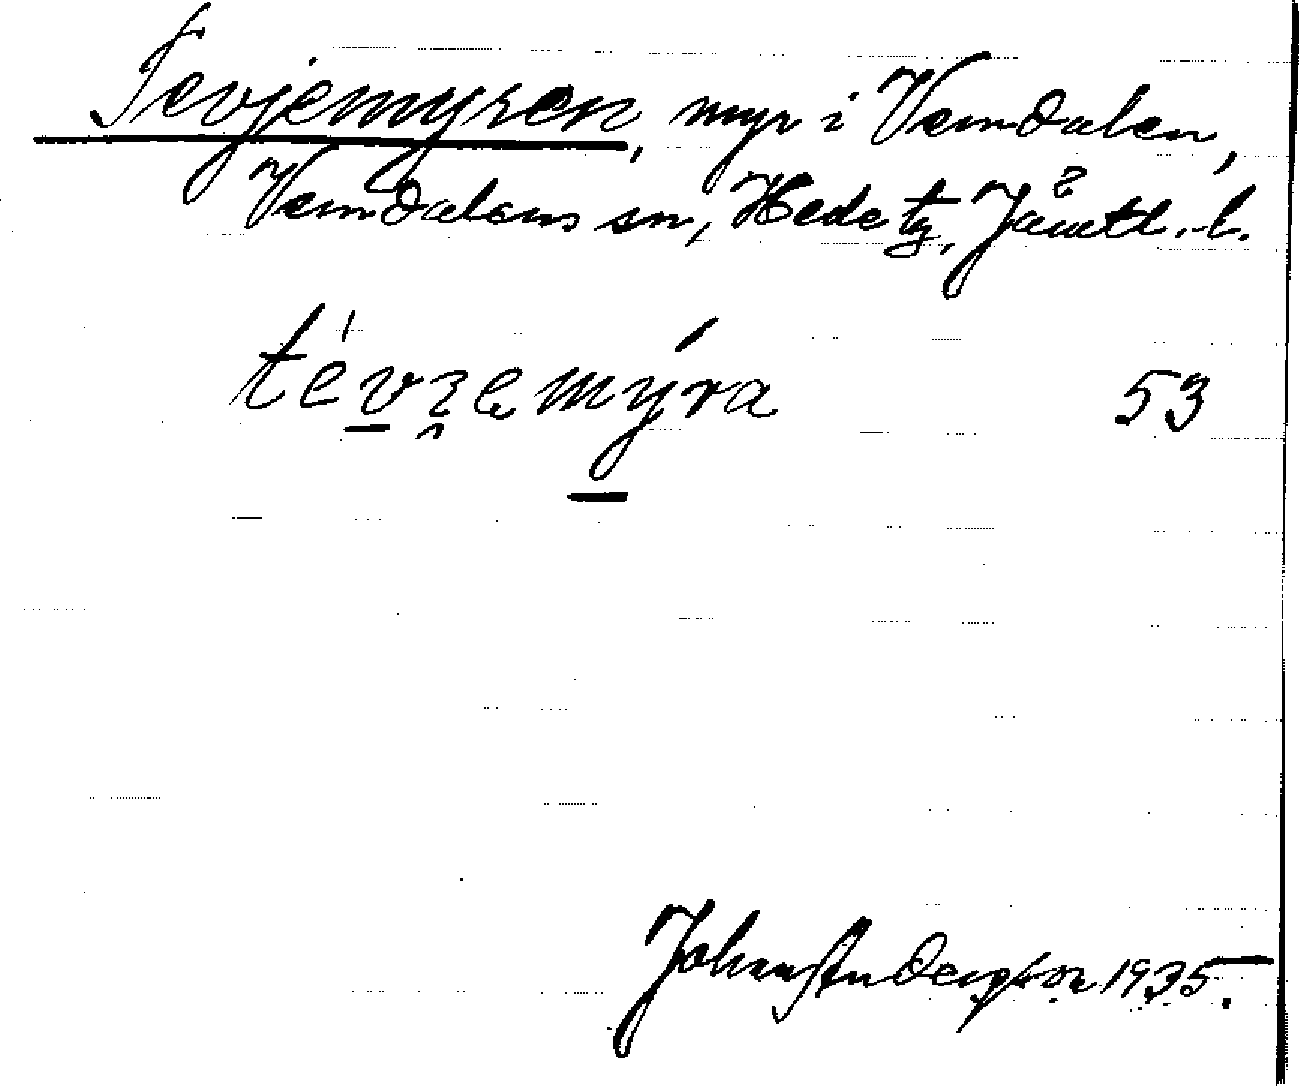 Tevjemyren, myr i Vemdalen,
Vemdalens sn, Hede tg, Jämtl. l.
tévʒemýra 53
Johan Anderson 1935.